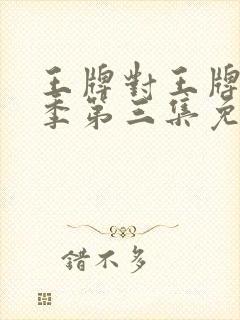 王牌對王牌
季第三集免
錯不多